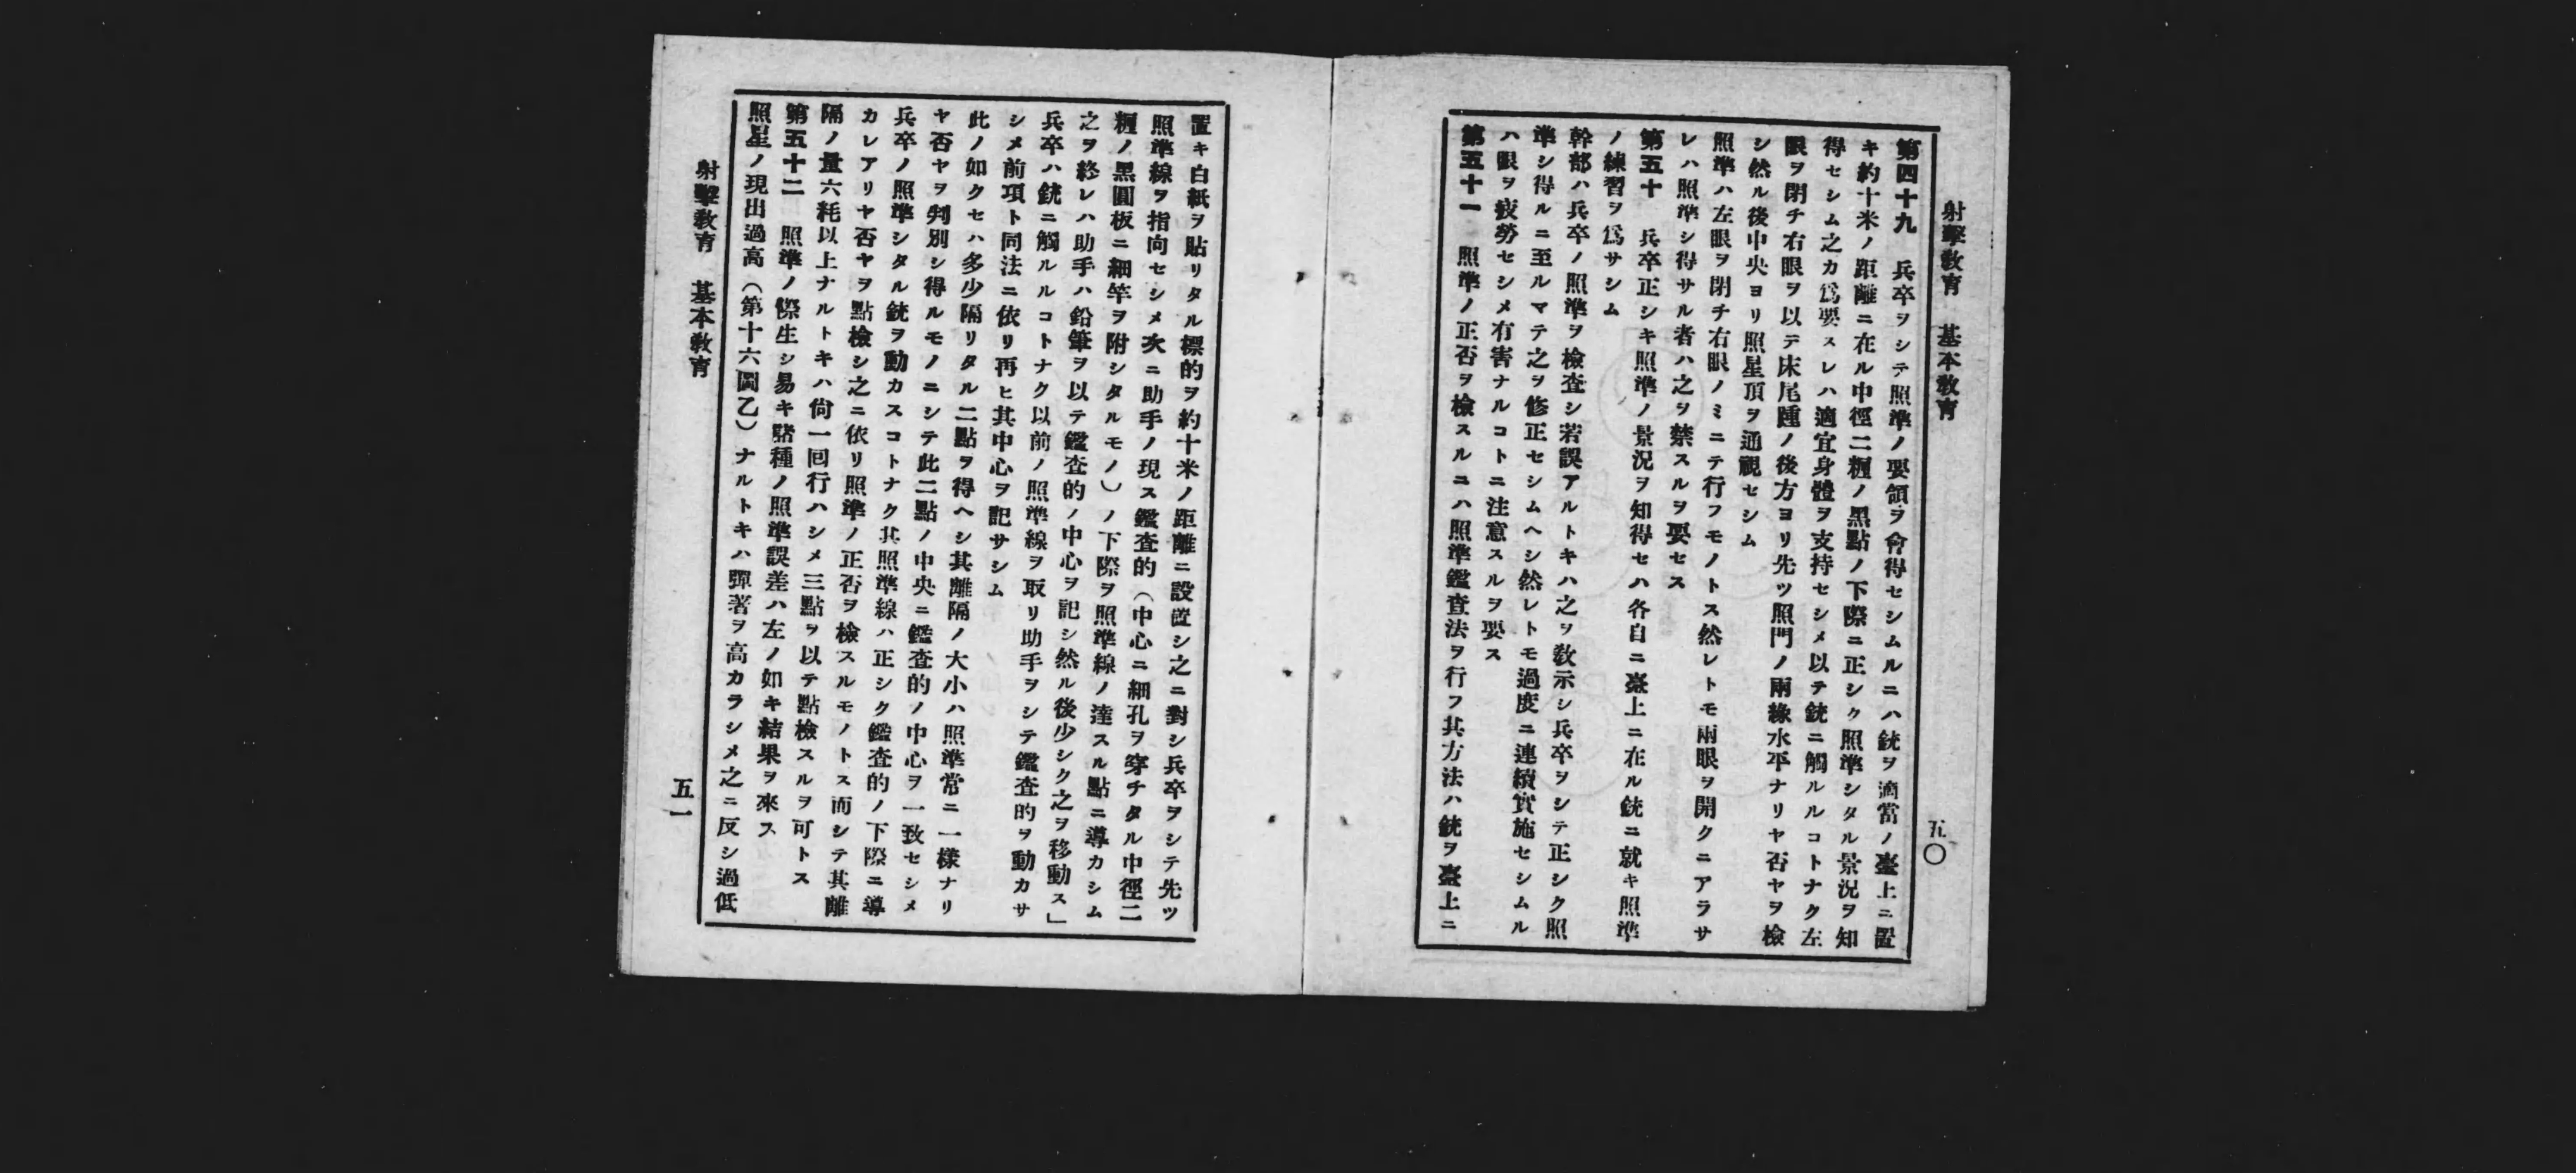 射擊敎育　基本敎育
五〇
第四十九　兵卒ヲシテ照準ノ要領ヲ會得セシムルニハ銃ヲ適當ノ臺上ニ置
キ約十米ノ距離ニ在ル中徑二糎ノ黑點ノ下際ニ正シク照準シタル景況ヲ知
得セシム之カ爲要スレハ適宜身體ヲ支持セシメ以テ銃ニ觸ルルコトナク左
眼ヲ閉チ右眼ヲ以テ床尾踵ノ後方ヨリ先ツ照門ノ兩緣水平ナリヤ否ヤヲ檢
シ然ル後中央ヨリ照星頂ヲ通視セシム
照準ハ左眼ヲ閉チ右眼ノミニテ行フモノトス然レトモ兩眼ヲ開クニアラサ
レハ照準シ得サル者ハ之ヲ禁スルヲ要セス
第五十　兵卒正シキ照準ノ景況ヲ知得セハ各自ニ臺上ニ在ル銃ニ就キ照準
ノ練習ヲ爲サシム
幹部ハ兵卒ノ照準ヲ檢査シ若誤アルトキハ之ヲ敎示シ兵卒ヲシテ正シク照
準シ得ルニ至ルマテ之ヲ修正セシムヘシ然レトモ過度ニ連續實施セシムル
ハ眼ヲ疲勞セシメ有害ナルコトニ注意スルヲ要ス
第五十一　照準ノ正否ヲ檢スルニハ照準鑑査法ヲ行フ其方法ハ銃ヲ臺上ニ
置キ白紙ヲ貼リタル標的ヲ約十米ノ距離ニ設置シ之ニ對シ兵卒ヲシテ先ツ
照準線ヲ指向セシメ次ニ助手ノ現ス鑑査的（中心ニ細孔ヲ穿チタル中徑二
糎ノ黑圓板ニ細竿ヲ附シタルモノ）ノ下際ヲ照準線ノ達スル點ニ導カシム
之ヲ終レハ助手ハ鉛筆ヲ以テ鑑査的ノ中心ヲ記シ然ル後少シク之ヲ移動ス」
兵卒ハ銃ニ觸ルルコトナク以前ノ照準線ヲ取リ助手ヲシテ鑑査的ヲ動カサ
シメ前項ト同法ニ依リ再ヒ其中心ヲ記サシム
此ノ如クセハ多少隔リタル二點ヲ得ヘシ其離隔ノ大小ハ照準常ニ一樣ナリ
ヤ否ヤヲ判別シ得ルモノニシテ此二點ノ中央ニ鑑査的ノ中心ヲ一致セシメ
兵卒ノ照準シタル銃ヲ動カスコトナク其照準線ハ正シク鑑査的ノ下際ニ導
カレアリヤ否ヤヲ點檢シ之ニ依リ照準ノ正否ヲ檢スルモノトス而シテ其離
隔ノ量六粍以上ナルトキハ尙一回行ハシメ三點ヲ以テ點檢スルヲ可トス
第五十二　照準ノ際生シ易キ諸種ノ照準誤差ハ左ノ如キ結果ヲ來ス
照星ノ現出過高（第十六圖乙）ナルトキハ彈著ヲ高カラシメ之ニ反シ過低
射擊敎育　基本敎育
五一